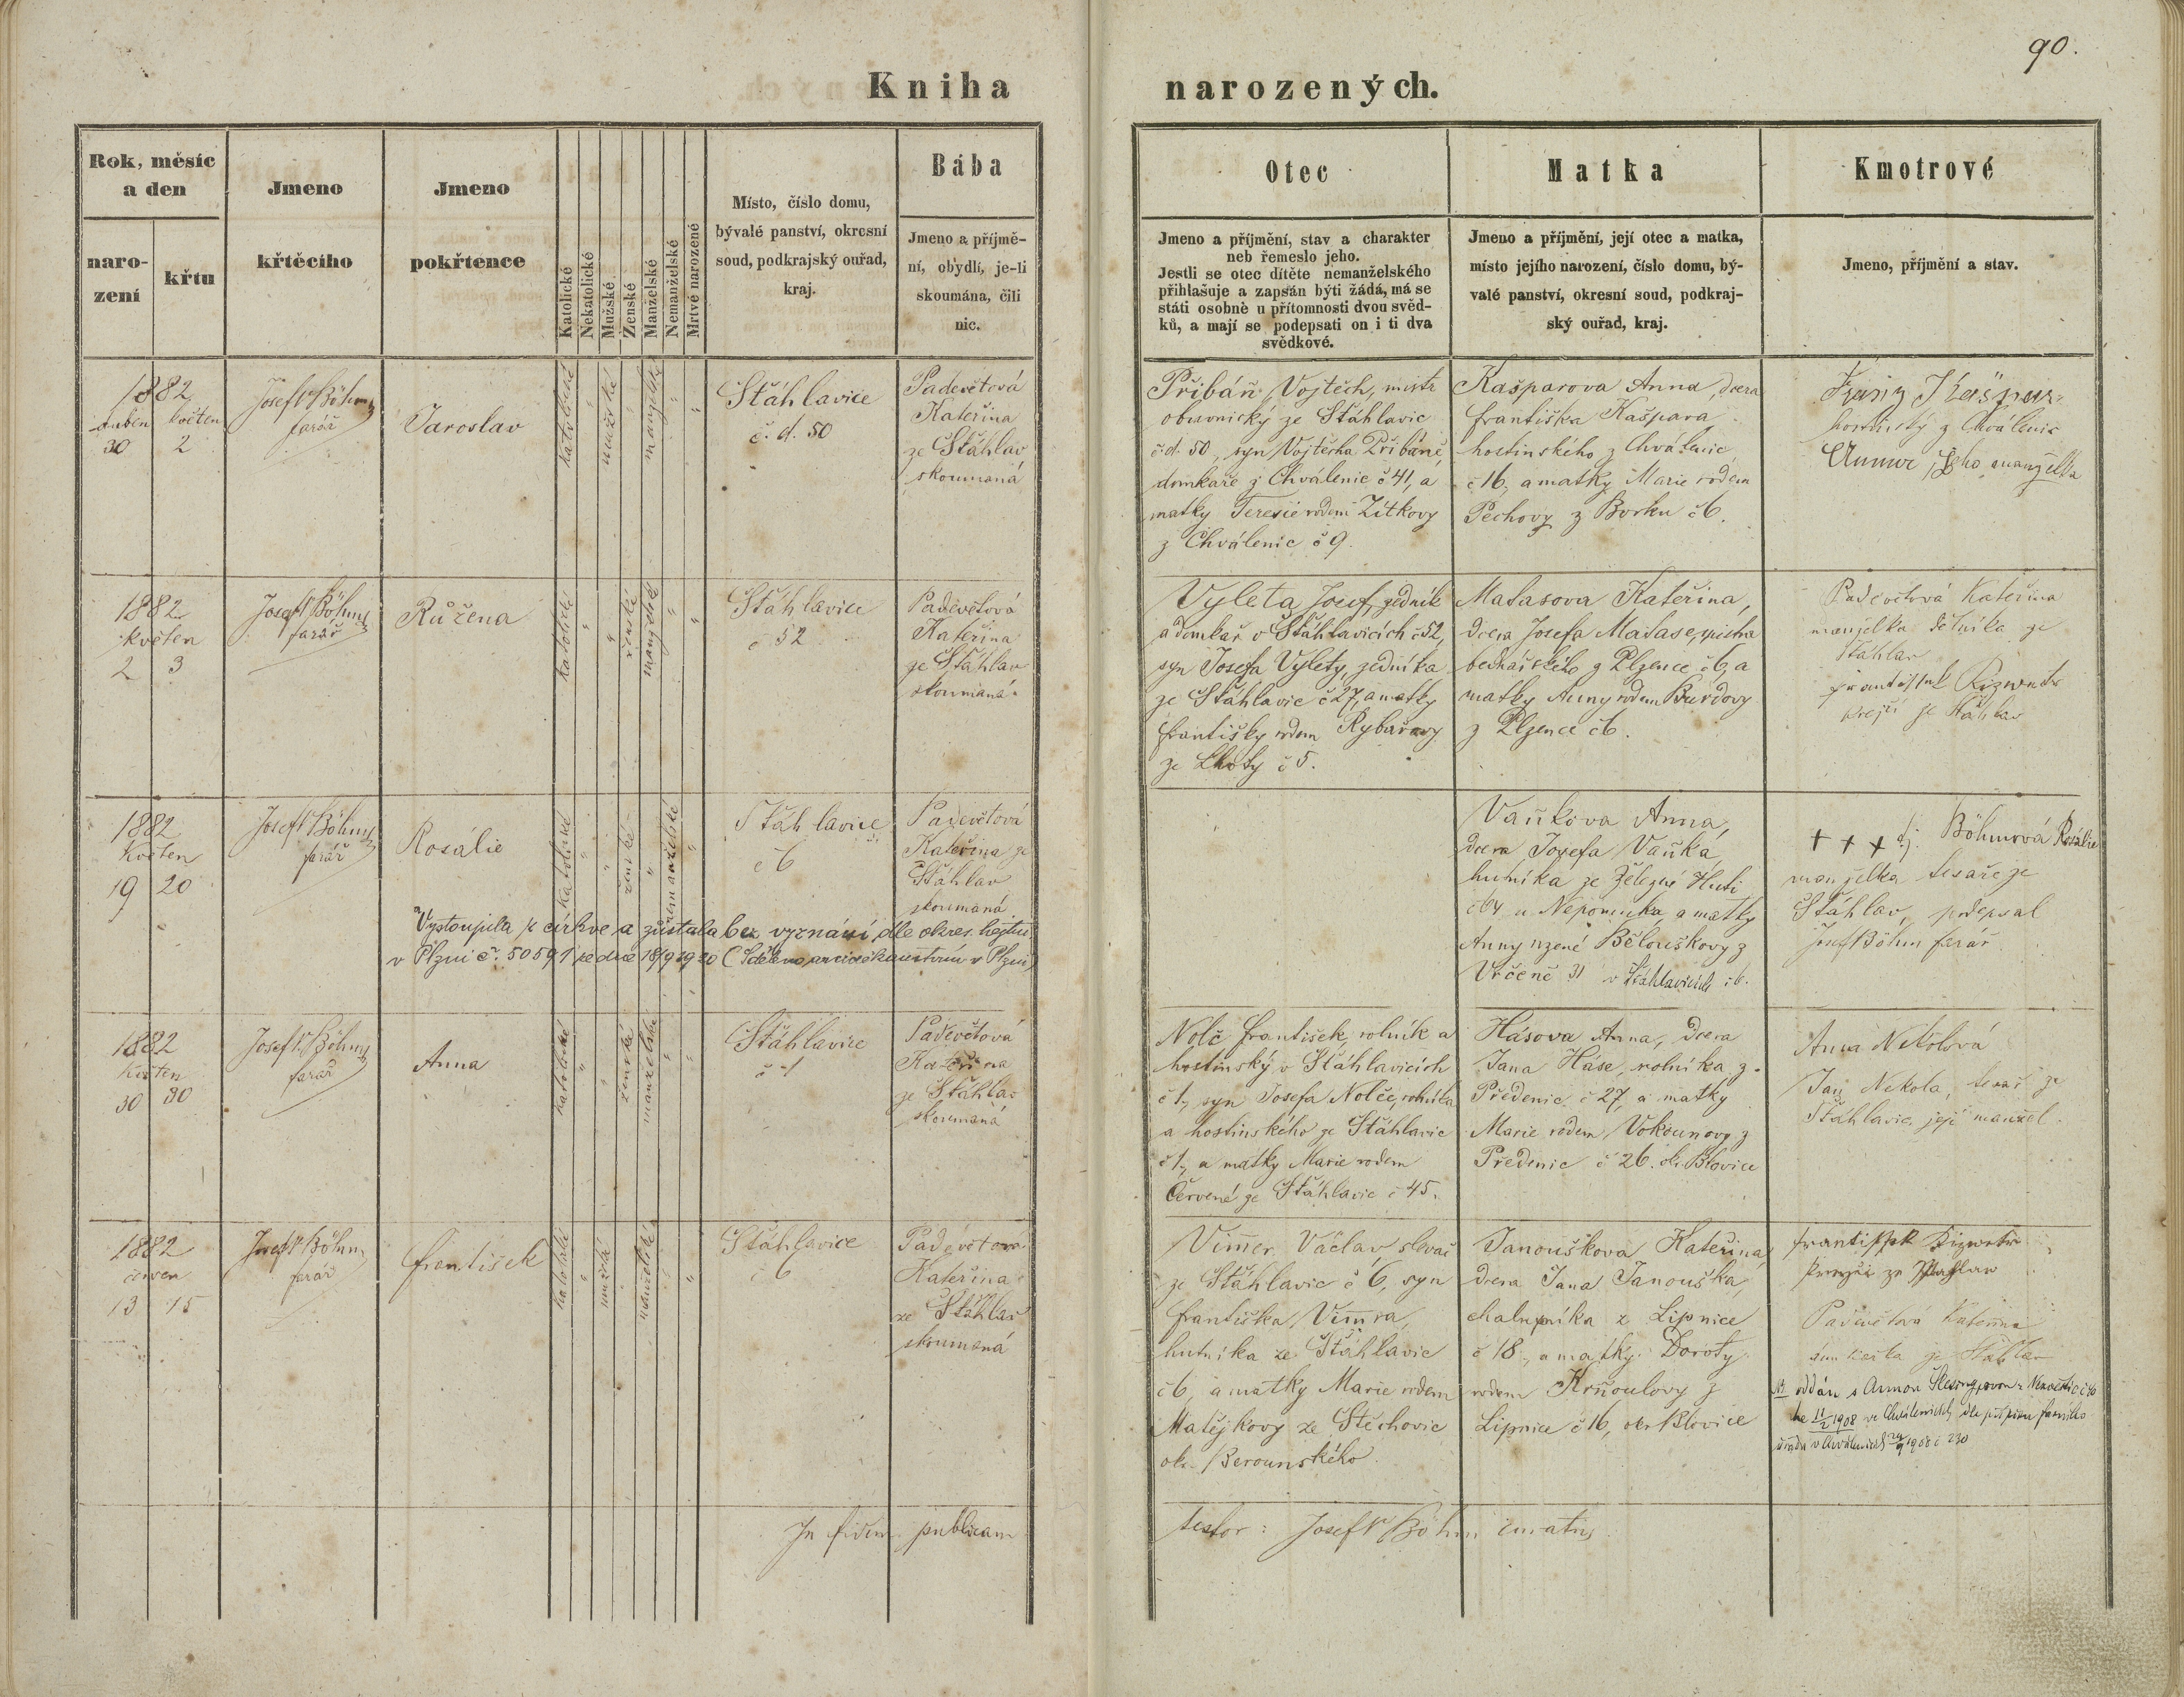 90.
Kniha narozených.
Rok, měsíc a den
narození
křtu
Jmeno křtěcího
Jmeno pokřtence
Katolické
Nekatolické
Mužské
Ženské
Manželské
Nemanželské
Mrtvé narozené
Místo, číslo domu,
bývalé panství, okresní
soud, podkrajský ouřad,
kraj.
Bába
Jmeno a příjmě-
ní, obydlí, je-li
skoumána, čili
nic.
Otec
Jmeno a příjmění, stav a charakter
neb řemeslo jeho.
Jestli se otec dítěte nemanželského
přihlašuje a zapsán býti žádá, má se
státi osobně u přítomnosti dvou svěd-
ků, a mají se podepsati on i ti dva
svědkové.
Matka
Jmeno a příjmění, její otec a matka,
místo jejího narození, číslo domu, bý-
valé panství, okresní soud, podkraj-
ský ouřad, kraj.
Kmotrové
Jmeno, příjmění a stav.
1882
duben květen
30 2
Josef Böhm
farář
Jaroslav
katolické
mužské
manželské
Štáhlavice
č. d. 50
Padevětová
Kateřina
ze Štáhlav
skoumaná
Přibáň Vojtěch, mistr
obuvnický ze Štáhlavic
č. d. 50, syn Vojtěcha Přibáně,
domkaře z Chválenic č 41, a
matky Teresie rodem Zítkovy
z Chválenic č 9.
Kašparova Anna, dcera
Františka Kašpara
hostinského z Chválenic
č 16, a matky Marie rodem
Pechovy z Borku č 6.
Kašpar
hostinský z Chválenic
Anna jeho manželka
1882
květen
2 3
Josef Böhm
farář
Růžena
katolické
ženské
manželské
Štáhlavice
č 52
Padevětová
Kateřina
ze Štáhlav
skoumaná
Vyleta Josef, zedník
a domkář v Štáhlavicích č 52,
syn Josefa Vylety, zedníka
ze Štáhlavic č 27, a matky
Františky rodem Rybářovy
ze Lhoty č 5.
Matasova Kateřina,
dcera Josefa Matase, mistra
bednářského z Plzence č 6, a
matky Anny rodem Burdovy
z Plzence č 6.
Padevětová Kateřina
manželka dělníka ze
Štáhlav
František
krejčí ze Štáhlav
1882
Květen
19 20
Josef Böhm
farář
Rosálie
katolické
ženské
nemanželské
Štáhlavice
č 6
Padevětová
Kateřina ze
Štáhlav
skoumaná
Vystoupila z církve a zůstala bez vyznání, dle okres. hejtm.
v Plzni č. 50591 ze dne 18/9 1920 (Sděleno arciděkanstvím v Plzni)
Vaňkova Anna,
dcera Josefa Vaňka,
hutníka ze Železné Huti
č 64 u Nepomuka, a matky
Anny rozené Běloušková z
Vrčeně 31 v Štáhlavicích č 6.
+ + + tj. Böhmová Rosálie
manželka tesaře ze
Štáhlav, podepsal
Josef Böhm farář
1882
Květen
30 30
Josef Böhm
farář
Anna
katolické
ženské
manželské
Štáhlavice
č 1
Padevětová
Kateřina
ze Štáhlav
skoumaná
Nolč František, rolník a
hostinský v Štáhlavicích
č 1, syn Josefa Nolče, rolníka
a hostinského ze Štáhlavic
č 1, a matky Marie rodem
Červené ze Štáhlavic č 45.
Hásova Anna, dcera
Jana Háse, rolníka z
Předenic č 27, a matky
Marie rodem Vokounovy z
Předenic č 26. ok. Blovice
Anna Nekolová
Jan Nekola, tesař ze
Štáhlavic, její manžel.
1882
červen
13 15
Josef Böhm
farář
František
katolické
mužské
manželské
Štáhlavice
č 6
Padevětová
Kateřina
ze Štáhlav
skoumaná
Vimer Václav, slevač
ze Štáhlavic č 6, syn
Františka Vimra,
hutníka ze Štáhlavic
č 6, a matky Marie rodem
Matějkovy ze Stěchovic
ok. Berounského.
Janouškova Kateřina,
dcera Jana Janouška,
chalupníka z Lipnice
č 18, a matky Doroty
rodem Krňoulovy z
Lipnice č 16, okr Blovice
František
krejčí ze Štáhlav
Padevětova Kateřina
ze Štáhlav
NB. oddán s Annou
11/2 1908 ve Chválenicích dle přípisu farního
úřadu v Chválenicích 1908 č 230
In fidem publicam
testor: Josef Böhm curatus